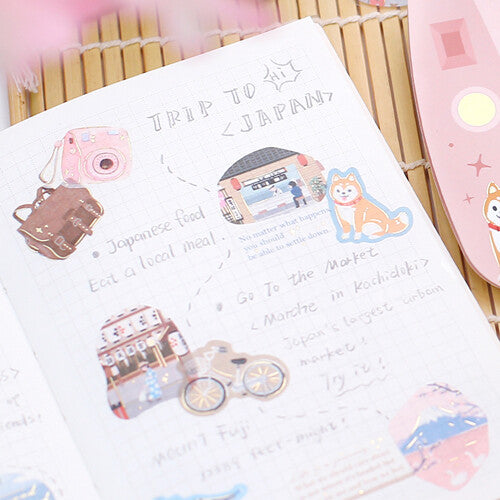 TRIP TO
HI
<JAPAN>
Japanese food
Eat a local meal
No matter what happens
you should
be able to settle down.
Go To the Market
<Marche in Kachidoki>
Japan's largest urban
market!
Try it!
Mount Fuji